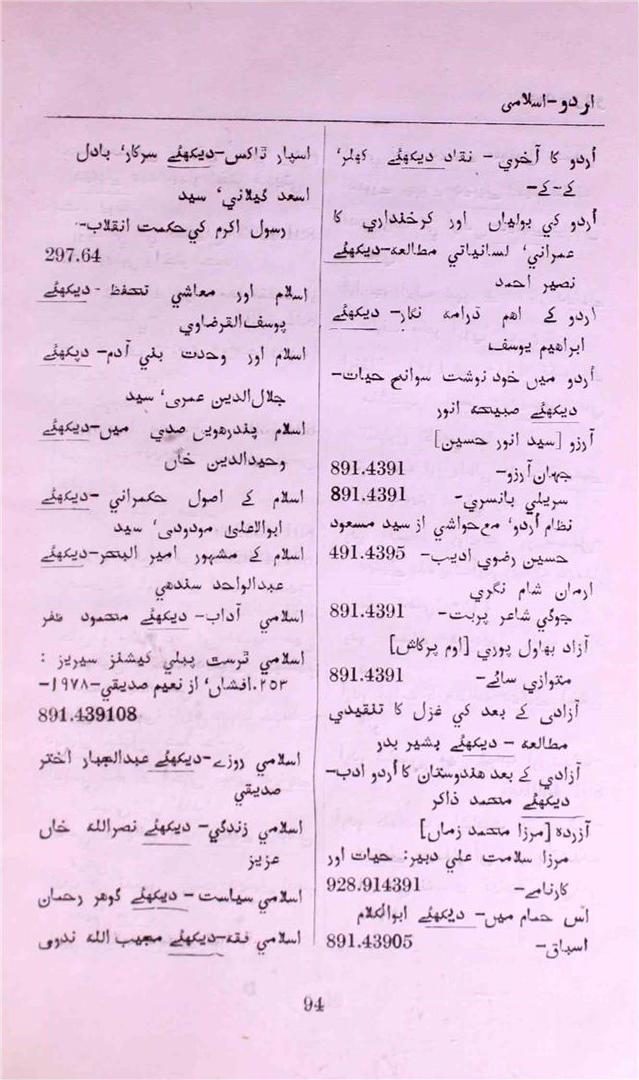 اردو-اسلامی
اُردو کا آخري- نقاد دیکھئے کھلر،
کے-کے-
اُردو کي بولیاں اور کرخنداري کا
عمراني، لسانیاتي مطالعہ-دیکھئے
نصیر احمد
اُردو کے اھم ڈرامہ نگار- دیکھئے
ابراھیم یوسف
اُردو میں خود نوشت سوانح حیات-
دیکھئے صبیحہ انور
آرزو [سید انور حسین]
جہان آرزو- 891.4391
سریلي بانسري- 891.4391
نظام اُردو، مع حواشي از سید مسعود
حسین رضوي ادیب- 491.4395
ارمان شام نگري
جوگي شاعر پربت- 891.4391
آزاد بھاول پوري [اوم پرکاش]
متوازي سائے- 891.4391
آزادی کے بعد کي غزل کا تنقیدي
مطالعہ - دیکھئے بشیر بدر
آزادي کے بعد ھندوستان کا اُردو ادب-
دیکھئے محمد ذاکر
آزردہ [مرزا محمد زماں]
مرزا سلامت علي دبیر: حیات اور
کارنامے- 928.914391
اس حمام میں- دیکھئے ابوالکلام
اسباق- 891.43905
اسپار ٹاکس-دیکھئے سرکار، بادل
اسعد گیلاني، سید
رسول اکرم کي حکمت انقلاب-
297.64
اسلام اور معاشي تحفظ - دیکھئے
یوسف القرضاوي
اسلام اور وحدت بني آدم- دیکھئے
جلال الدین عمري، سید
اسلام پندرھویں صدي میں- دیکھئے
وحیدالدین خاں
اسلام کے اصول حکمراني -دیکھئے
ابوالاعلیٰ مودودی، سید
اسلام کے مشہور امیر البحر-دیکھئے
عبدالواحد سندھي
اسلامي آداب- دیکھئے محمود ظفر
اسلامي ٹرسٹ پبلي کیشنز سیریز :
۲۵۳. افشاں، از نعیم صدیقي-۱۹۷۸-
891.439108
اسلامي روزے-دیکھئے عبدالجبار اختر
صدیقي
اسلامي زندگي- دیکھئے نصراللہ خاں
عزیز
اسلامي سیاست - دیکھئے گوھر رحمان
اسلامي فقہ-دیکھئے مجیب اللہ ندوی
94